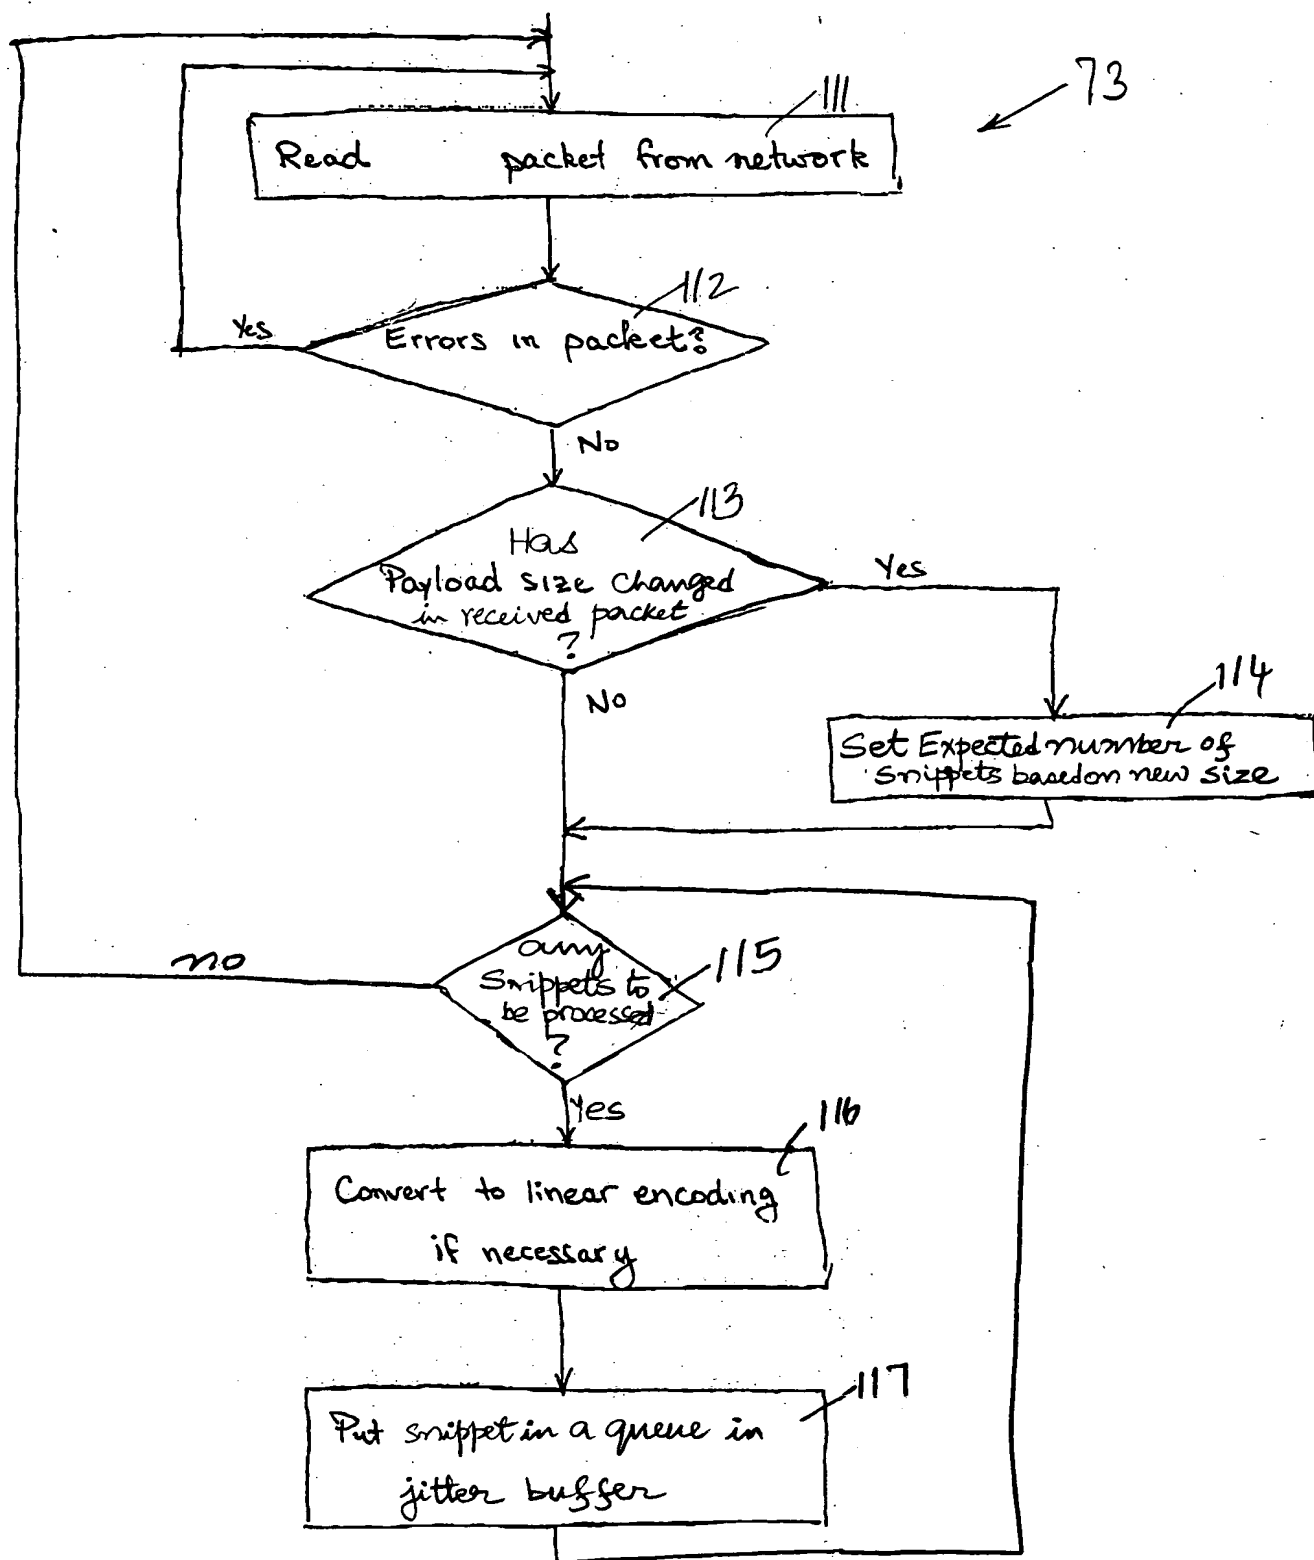 73
111
Read packet from network
112
Errors in packet?
Yes
No
113
Has
Payload size changed
in received packet
?
Yes
No
114
Set Expected number of
snippets based on new size
any
Snippets to
be processed
?
115
no
Yes
116
Convert to linear encoding
if necessary
117
Put snippet in a queue in
jitter buffer